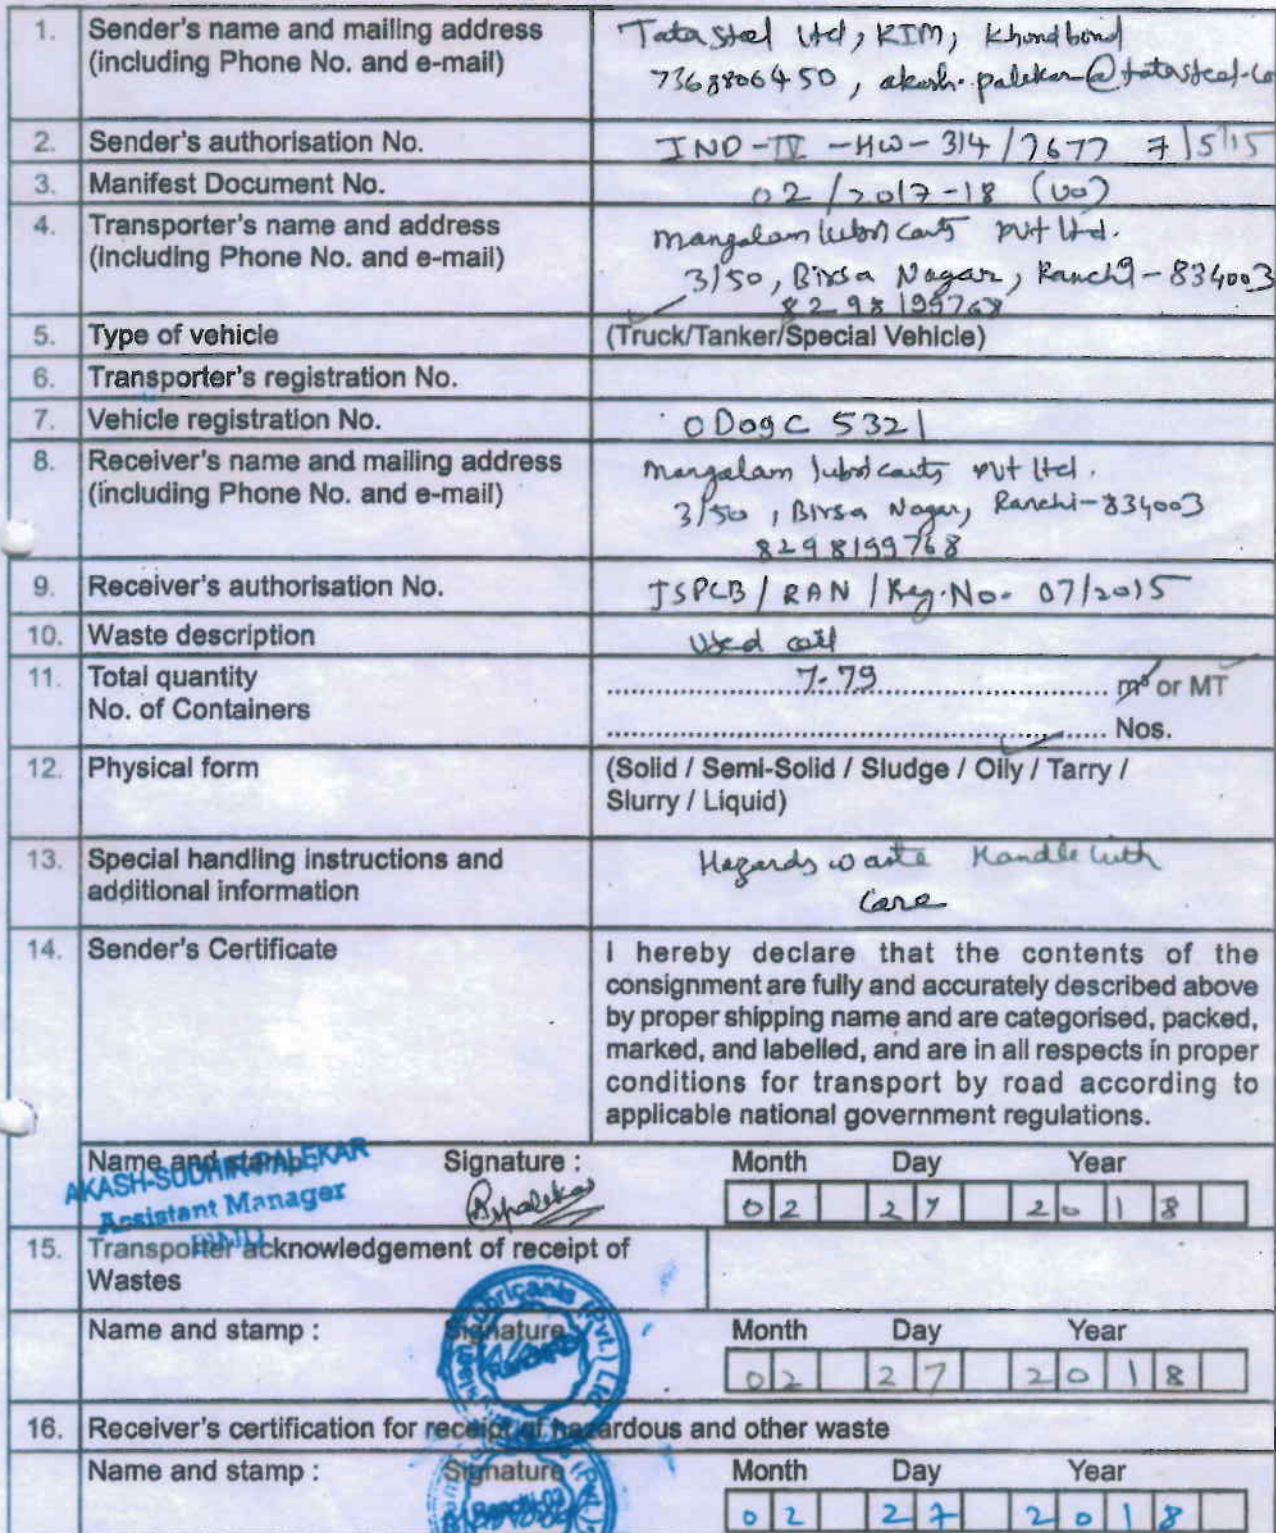 1. Sender's name and mailing address Tata Steel Ltd, KIM, Khondbond
(including Phone No. and e-mail) 7368806450, akash.palekar@tatasteel.co
2. Sender's authorisation No. IND-IV-HW-314/7677 7/5/15
3. Manifest Document No. 02/2017-18 (UO)
4. Transporter's name and address Mangalam lubricants Pvt Ltd.
(including Phone No. and e-mail) 3/50, Birsa Nagar, Ranchi-834003
8298199768
5. Type of vehicle (Truck/Tanker/Special Vehicle)
6. Transporter's registration No.
7. Vehicle registration No. OD09C 5321
8. Receiver's name and mailing address Mangalam lubricants Pvt Ltd.
(including Phone No. and e-mail) 3/50, Birsa Nagar, Ranchi-834003
8298199768
9. Receiver's authorisation No. JSPCB/RAN/Reg.No. 07/2015
10. Waste description Used oil
11. Total quantity 7.79 m³ or MT
No. of Containers Nos.
12. Physical form (Solid / Semi-Solid / Sludge / Oily / Tarry /
Slurry / Liquid)
13. Special handling instructions and Hazards waste Handle with
additional information Care
14. Sender's Certificate I hereby declare that the contents of the
consignment are fully and accurately described above
by proper shipping name and are categorised, packed,
marked, and labelled, and are in all respects in proper
conditions for transport by road according to
applicable national government regulations.
Name and stamp: Signature : Month Day Year
AKASH-SUDHIR-PALEKAR
Assistant Manager Aspalekar 02 27 2018
15. Transporter acknowledgement of receipt of
Wastes
Name and stamp : Signature Month Day Year
Lubricants (Pvt.) Ltd 02 27 2018
16. Receiver's certification for receipt of hazardous and other waste
Name and stamp : Signature Month Day Year
(Pvt.) 02 27 2018